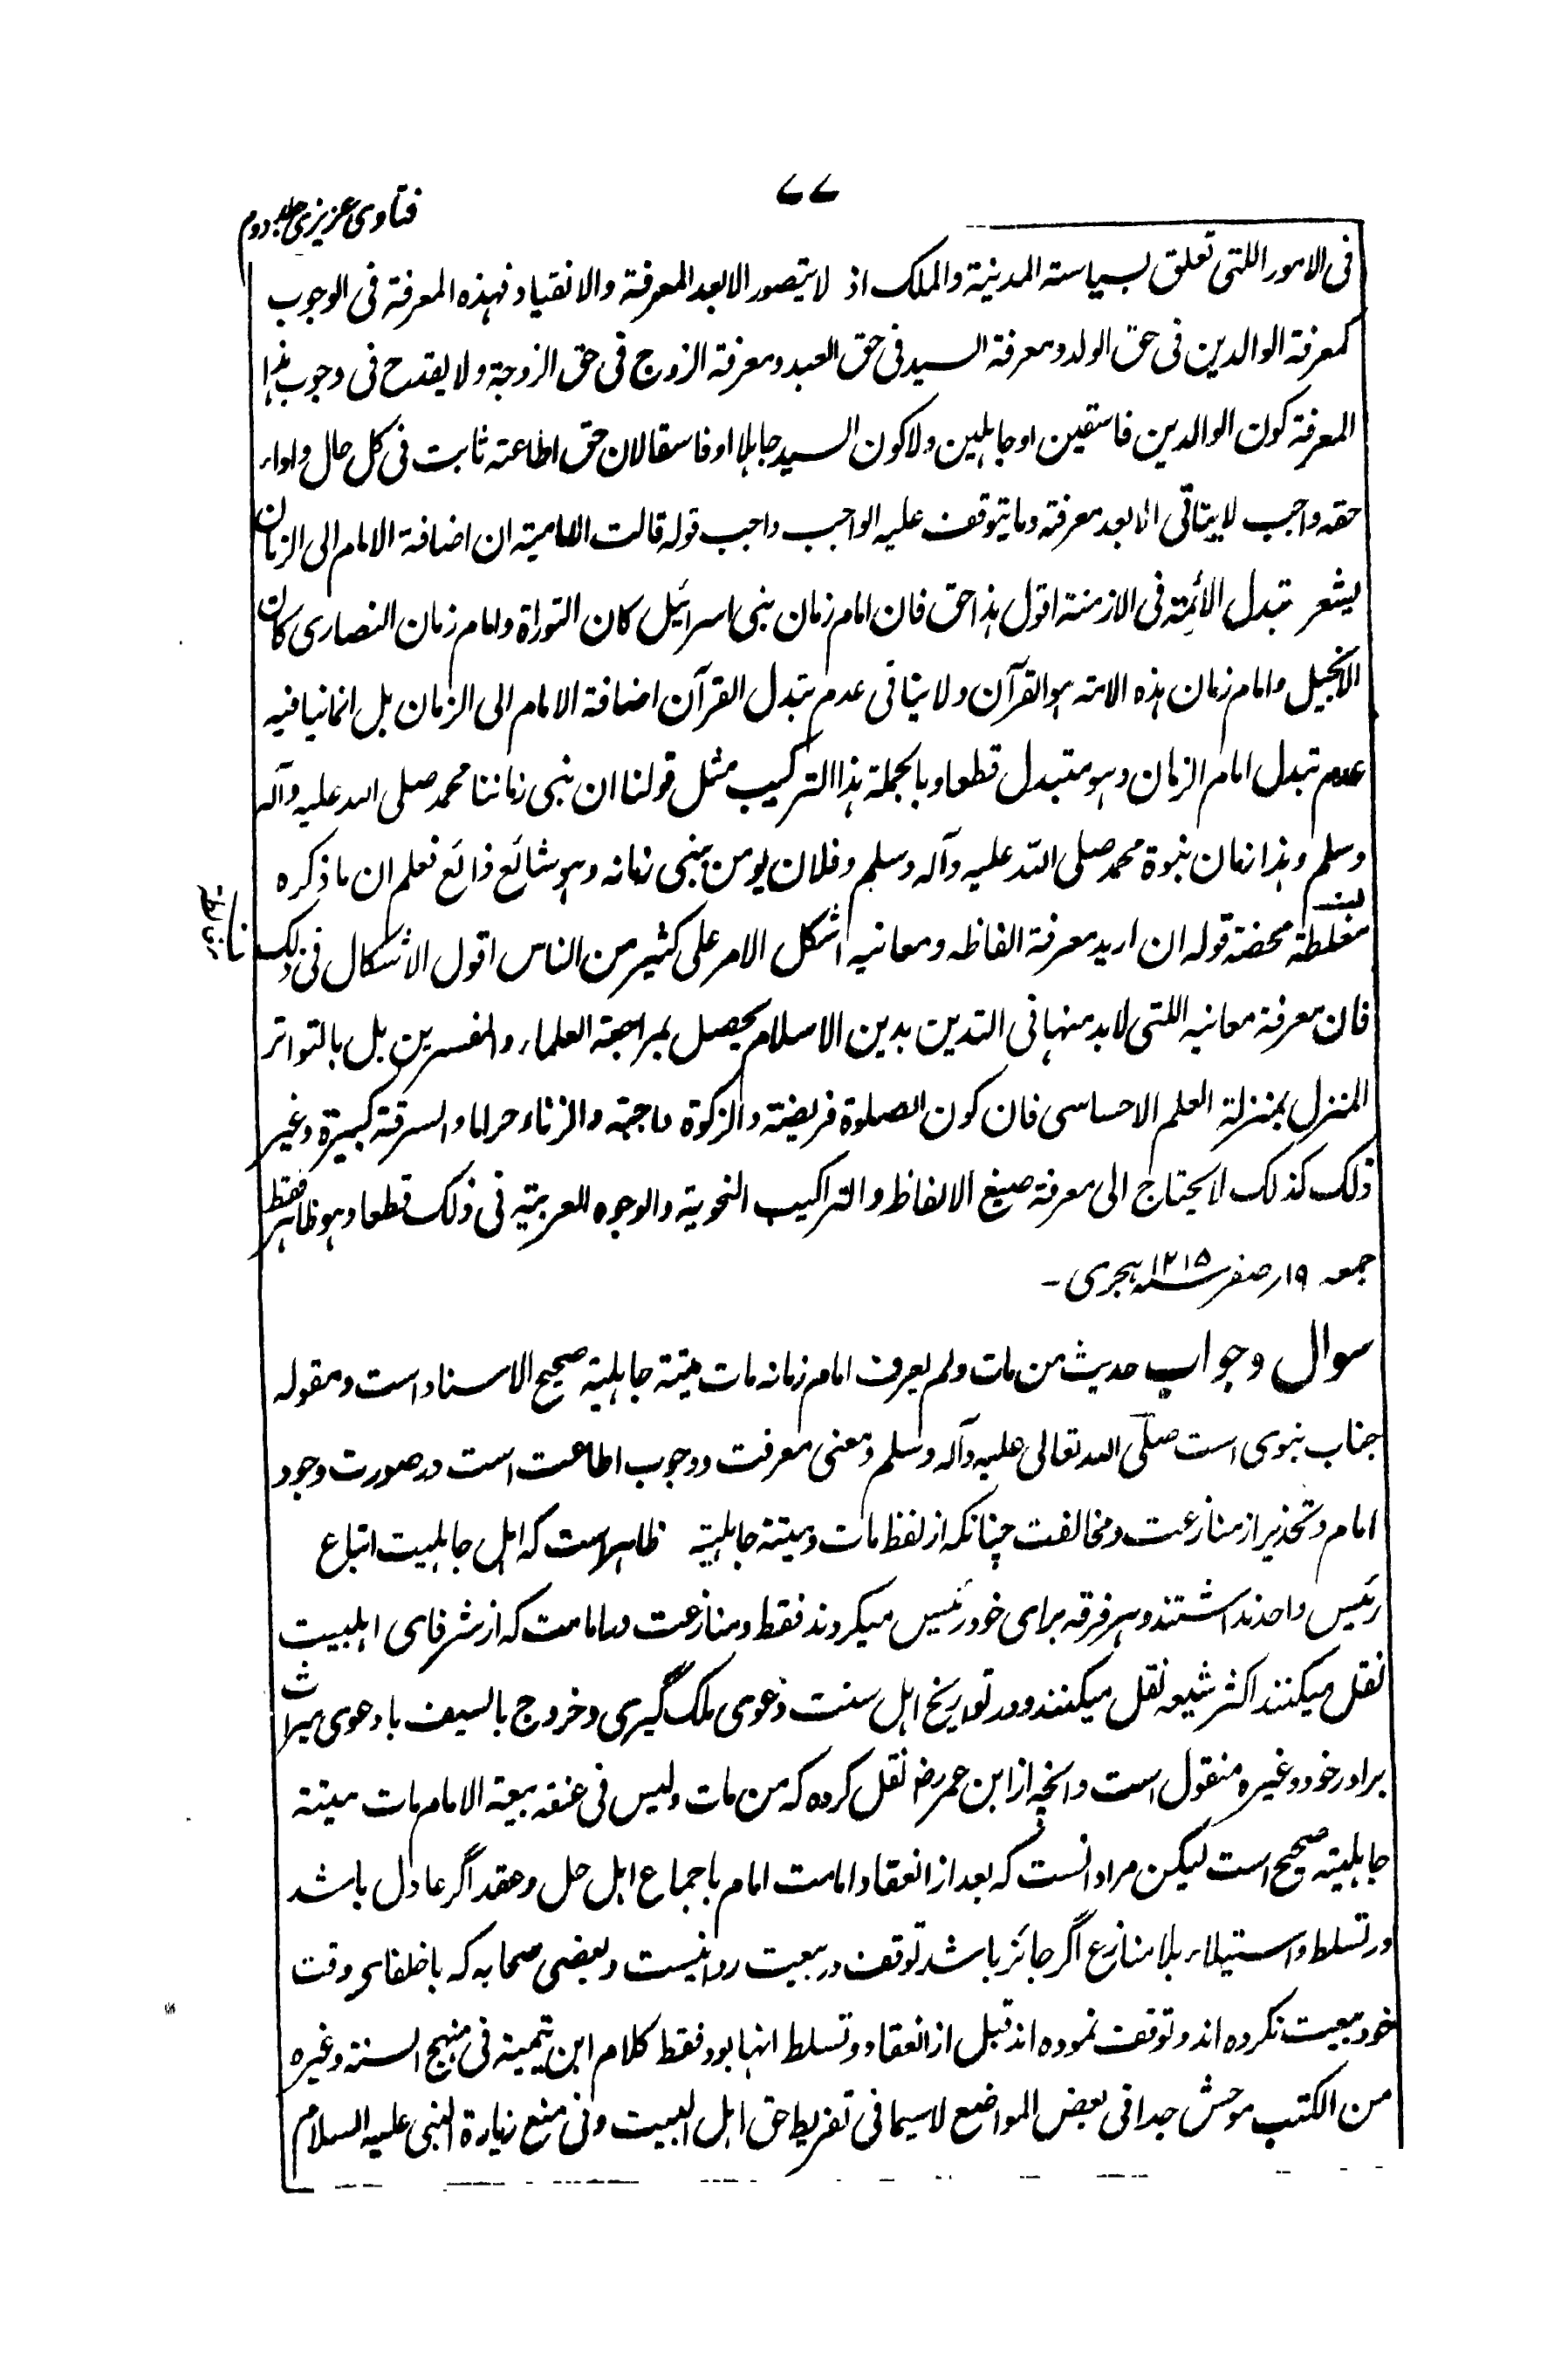 ۷۷
فتاوی عزیزی جلد دوم
فی الامور اللتی تعلق بسیاسة المدنیة والملک اذ لا یتصور الا بعد المعرفة والانقیاد فهذه المعرفة فی الوجوب
کمعرفة الوالدین فی حق الولد ومعرفة السید فی حق العبد ومعرفة الزوج فی حق الزوجة ولا یقدح فی وجوب هذا
المعرفة کون الوالدین فاسقین او جاهلین ولا کون السید جاهلا او فاسقا لان حق اطاعته ثابت فی کل حال واداء
حقه واجب لا یتاتی الا بعد معرفته وما یتوقف علیه الواجب واجب قوله قالت الامامیة ان اضافة الامام الی الزمان
یشعر تبدل الأئمة فی الازمنة اقول هذا حق فان امام زمان بنی اسرائیل کان التوراة وامام زمان النصاری کان
الانجیل وامام زمان هذه الامة هو القرآن ولا ینافی عدم تبدل القرآن اضافة الامام الی الزمان بل انما ینافیه
عدم تبدل امام الزمان وهو متبدل قطعا وبالجملة هذا الترکیب مثل قولنا ان نبی زماننا محمد صلی الله علیه وآله
وسلم وهذا زمان نبوة محمد صلی الله علیه وآله وسلم وفلان یومن بنبی زمانه وهو شائع ذائع فعلم ان ما ذکره
مغلطة محضة قوله ان ارید معرفة الفاظه ومعانیه اشکل الامر علی کثیر من الناس اقول الاشکال فی ذلک
فان معرفة معانیه اللتی لابد منها فی التدین بدین الاسلام یحصل بمراجعة العلماء والمفسرین بل بالتواتر
المنزل بمنزلة العلم الاحساسی فان کون الصلوة فریضة والزکوة واجبة والزناء حراما والسرقة کبیرة وغیر
ذلک کذلک لا یحتاج الی معرفة صیغ الالفاظ والتراکیب النحویة والوجوه العربیة فی ذلک قطعا وهو ظاهر فقط
جمعه ۱۹ر صفر سنه ۱۲۱۵ هجری -
سوال وجواب حدیث من مات ولم یعرف امام زمانه مات میتة جاهلیة صحیح الاسناد است ومقوله
جناب نبوی است صلّی الله تعالی علیه وآله وسلم ومعنی معرفت ووجوب اطاعت است در صورت وجود
امام وتحذیر از منازعت ومخالفت چنانکه از لفظ مات ومیتة جاهلیة ظاهر است که اهل جاهلیت اتباع
رئیس واحد نداشتند وهر فرقه برای خود رئیس میکردند فقط ومنازعت در امامت که از شرفای اهلبیت
نقل میکنند اکثر شیعه نقل میکنند ودر تواریخ اهل سنت دعوی ملک گیری وخروج بالسیف با دعوی میراث
برادر خود وغیره منقول است وانچه از ابن عمر رض نقل کرده که من مات ولیس فی عنقه بیعة الامام مات میتة
جاهلیة صحیح است لیکن مراد انست که بعد از انعقاد امامت امام باجماع اهل حل وعقد اگر عادل باشد
ور تسلط واستیلاء بلا منازع اگر جائز باشد توقف در بیعت روا نیست وبعضی صحابه که با خلفای وقت
خود بیعت نکرده اند وتوقف نموده اند قبل از انعقاد وتسلط انها بود فقط کلام ابن تیمیة فی منهج السنة وغیره
من الکتب موحش جدا فی بعض المواضع لاسیما فی تفریط حق اهل البیت وفی منع زیارة النبی علیه السلام